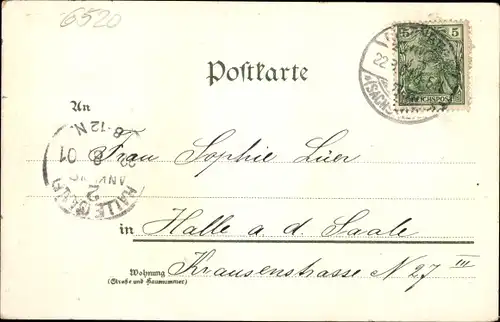 6520
Postkarte
5 5
REICHSPOST
22.
(SACHS
An
8-12 N.
01
8
22
AN
2
HALLE (SAALE)
Frau Sophie Lüer
in Halle a. d. Saale
Wohnung Krausenstrasse N 27 III
(Straße und Hausnummer)